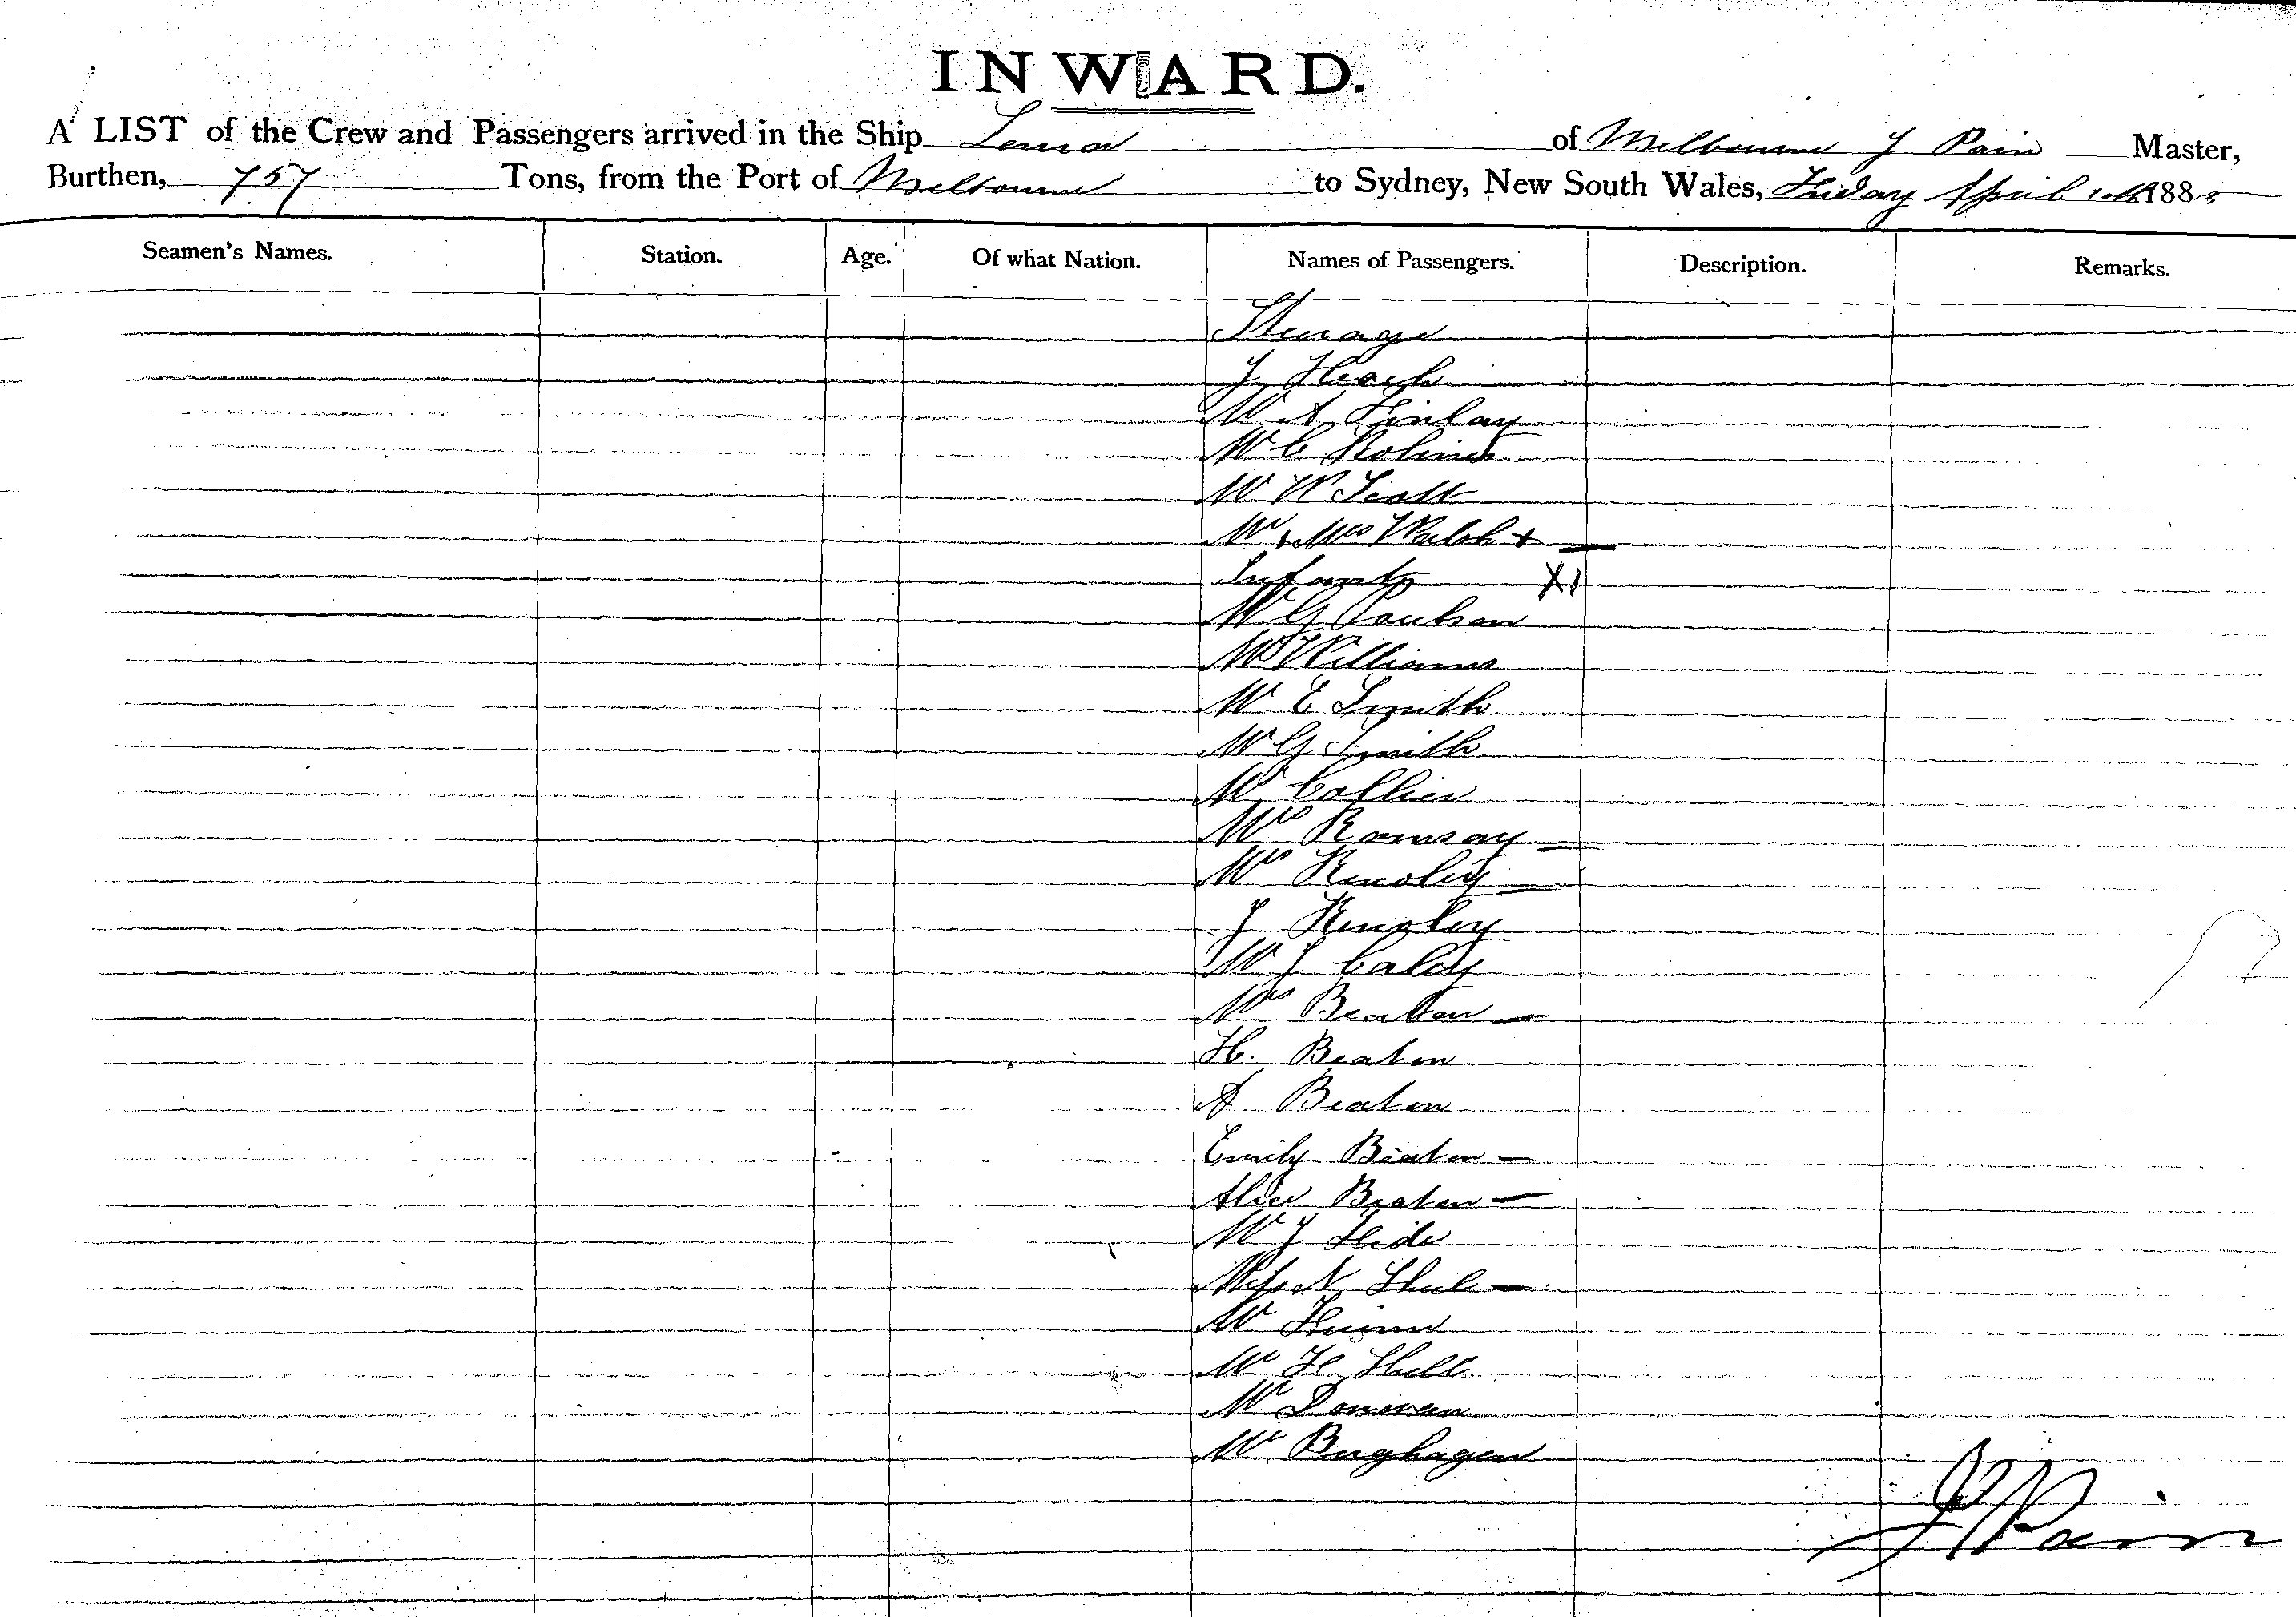 INWARD.
A LIST of the Crew and Passengers arrived in the Ship of Melbourne J Pain Master,
Burthen, 757 Tons, from the Port of Melbourne to Sydney, New South Wales, Friday April 188
Seamen's Names. Station. Age. Of what Nation. Names of Passengers. Description. Remarks.
Steerage
J
Mr A Finlay
Mr C
Mr W Scott
Mr & Mrs Walsh +
Infants X1
Mr G
Mr Williams
Mr E Smith
Mr G Smith
Mr Collier
Mrs Ramsay
Mrs Kingsley
J Kingsley
Mr J
Mrs Beaton
H. Beaton
A Beaton
Emily Beaton
Alice Beaton
Mr J
Miss N
Mr
Mr H
Mr Donovan
Mr Berghagen
J Pain